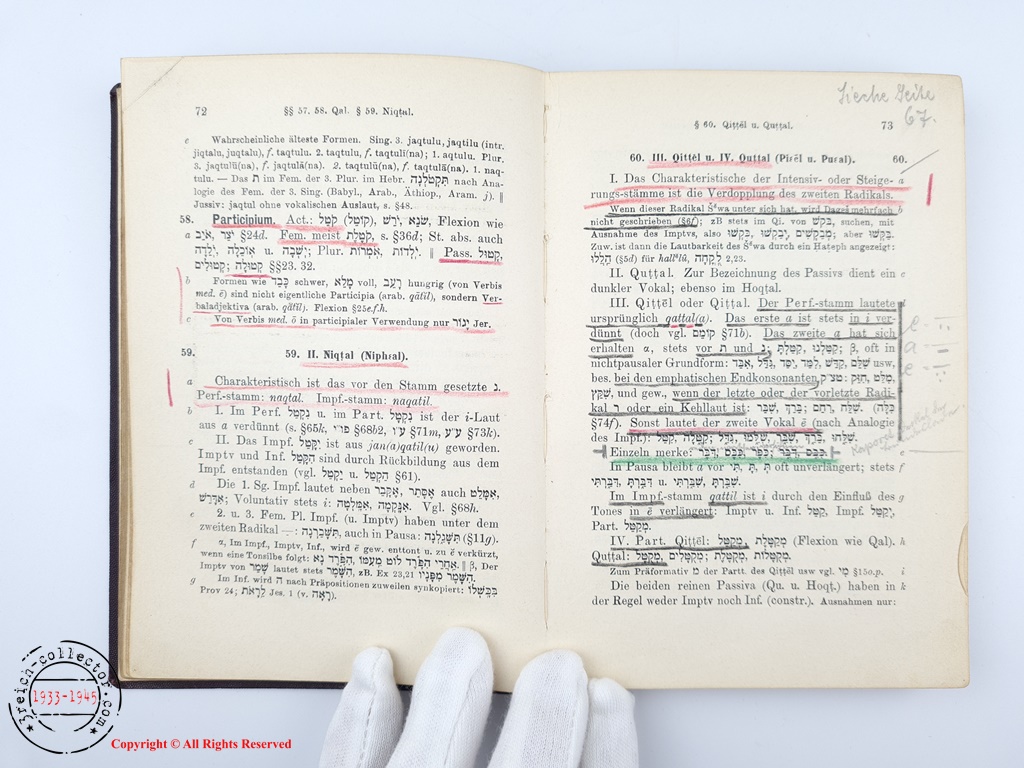 72 §§ 57. 58. Qal. § 59. Niqtal.
c Wahrscheinliche älteste Formen. Sing. 3. jaqtulu, jaqtilu (intr.
jiqtalu, juqtalu), f. taqtulu. 2. taqtulu, f. taqtulī(na); 1. aqtulu. Plur.
3. jaqtulū(na), f. jaqtulā(na). 2. taqtulū(na), f. taqtulā(na). 1. naq-
tulu. — Das ת im Fem. der 3. Plur. im Hebr. תִּקְטֹלְנָה nach Ana-
logie des Fem. der 3. Sing. (Babyl., Arab., Äthiop., Aram. j). ||
Jussiv: jaqtul ohne vokalischen Auslaut, s. §48.
58. Participium. Act.: קֹטֵל (קוֹטֵל), שֹׂנֵא, יֹרֵשׁ, Flexion wie
a אֹיֵב, יֹצֵר §24d. Fem. meist קֹטֶלֶת, s. §36d; St. abs. auch
יֹלֵדָה, אוֹכֵלָה u. יֹשְׁבָה; Plur. אֹמְרוֹת, יֹלְדוֹת. || Pass. קָטוּל,
קְטוּלָה; קְטוּלִים §§23. 32.
b Formen wie כָּבֵד schwer, מָלֵא voll, רָעֵב hungrig (von Verbis
med. ē) sind nicht eigentliche Participia (arab. qātil), sondern Ver-
baladjektiva (arab. qatil). Flexion §25e.f.h.
c Von Verbis med. ō in participialer Verwendung nur יָגוֹר Jer.
59. 59. II. Niqtal (Niphʿal).
a Charakteristisch ist das vor den Stamm gesetzte נ.
Perf.-stamm: naqtal. Impf.-stamm: naqatil.
b I. Im Perf. נִקְטַל u. im Part. נִקְטָל ist der i-Laut
aus a verdünnt (s. §65k, פרי §68b2, ע״ו §71m, ע״ע §73k).
c II. Das Impf. יִקָּטֵל ist aus jan(a)qatil(u) geworden.
Imptv und Inf. הִקָּטֵל sind durch Rückbildung aus dem
Impf. entstanden (vgl. יִקָּטֵל u. הִקָּטֵל §61).
d Die 1. Sg. Impf. lautet neben אֶקָּבֵר, אֶסָּתֵר auch אִמָּלֵט,
אִדָּרֵשׁ; Voluntativ stets i: אִמָּלְטָה, אִנָּקְמָה. Vgl. §68h.
e 2. u. 3. Fem. Pl. Impf. (u. Imptv) haben unter dem
zweiten Radikal —: תִּשָּׁבַרְנָה, auch in Pausa: תִּשָּׁגַלְנָה (§11g).
f α, Im Impf., Imptv, Inf., wird ē gew. enttont u. zu é verkürzt,
wenn eine Tonsilbe folgt: אַחֲרֵי הִפָּרֶד לוֹט מֵעִמּוֹ, הִפָּרֶד נָא. || β, Der
Imptv von שָׁמַר lautet stets הִשָּׁמֶר, zB. Ex 23,21 הִשָּׁמֶר מִפָּנָיו.
g Im Inf. wird ה nach Präpositionen zuweilen synkopiert: בִּכָּשְׁלוֹ
Prov 24; לֵרָאֹת Jes. 1 (v. רָאָה).
Siehe Seite
67.
§ 60. Qittēl u. Quttal. 73
60. III. Qittēl u. IV. Quttal (Piʿēl u. Puʿal). 60.
I. Das Charakteristische der Intensiv- oder Steige- a
rungs-stämme ist die Verdopplung des zweiten Radikals.
Wenn dieser Radikal Šᵉwa unter sich hat, wird Dageš mehrfach b
nicht geschrieben (§6f); zB stets im Qi. von בִּקֵּשׁ, suchen, mit
Ausnahme des Imptvs, also מְבַקְשִׁים, יְבַקְשׁוּ, בִּקְשׁוּ, aber בַּקְּשׁוּ.
Zuw. ist dann die Lautbarkeit des Šᵉwa durch ein Hateph angezeigt:
הַלֲלוּ (§5d) für hallᵉlû, לֻקֳחָה 2,23.
II. Quttal. Zur Bezeichnung des Passivs dient ein c
dunkler Vokal; ebenso im Hoqtal.
III. Qittēl oder Qittal. Der Perf.-stamm lautete d
ursprünglich qattal(a). Das erste a ist stets in i ver-
dünnt (doch vgl. קוֹמֵם §71b). Das zweite a hat sich
erhalten α, stets vor ת und נ: קִטַּלְתָּ, קִטַּלְנוּ; β, oft in
nichtpausaler Grundform: אִבַּד, גִּדַּל, יִסַּד, לִמַּד, קִדַּשׁ, שִׁלַּם usw,
bes. bei den emphatischen Endkonsonanten טצק, מִלַּט, חִזַּק,
שִׁקַּץ, und gew., wenn der letzte oder der vorletzte Radi-
kal ר oder ein Kehllaut ist: שִׁלַּח, רִחַם; בֵּרַךְ, שִׁבַּר (כִּלָּה
§74f). Sonst lautet der zweite Vokal ē (nach Analogie
des Impf.): קִטֵּל; קִטְּלָה, גִּדֵּל; שִׁלְּמוּ, שִׁבֵּר, בֵּרֵךְ, שִׁלְּחוּ.
Einzeln merke: דִּבֶּר, דִּבֵּר; כִּפֶּר, כִּבֶּס, כִּבֵּס. e
In Pausa bleibt a vor תָּ, תְּ, תִּי oft unverlängert; stets f
דִּבַּרְתָּ, דִּבַּרְתִּי u. שִׁבַּרְתָּ, שִׁבַּרְתִּי.
Im Impf.-stamm qattil ist i durch den Einfluß des g
Tones in ē verlängert: Imptv u. Inf. קַטֵּל, Impf. יְקַטֵּל,
Part. מְקַטֵּל.
IV. Part. Qittēl: מְקַטֵּל, מְקַטֶּלֶת (Flexion wie Qal). h
Quttal: מְקֻטָּל, מְקֻטָּלִים; מְקֻטֶּלֶת, מְקֻטָּלוֹת.
Zum Präformativ מ der Partt. des Qittēl usw vgl. מִי §15o.p. i
Die beiden reinen Passiva (Qu. u. Hoqt.) haben in k
der Regel weder Imptv noch Inf. (constr.). Ausnahmen nur:
3reich-collector.com
1933-1945
Copyright © All Rights Reserved